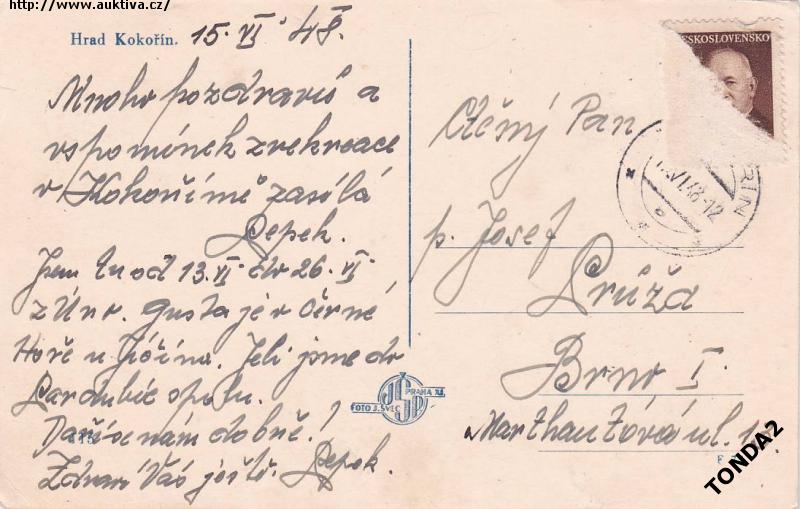 http://www.auktiva.cz/
Hrad Kokořín. 15. VI 48.
Mnoho pozdravů a
vzpomínek z rekreace
v Kokoříně zasílá
Pepek.
Jsem tu od 13.VI do 26.VI
z Únr. Gusta je v Černé
Hoře u Jičína. Jeli jsme do
Pardubic spolu.
Daří se nám dobře!
Zdraví Vás ještě. Pepek.
ČESKOSLOVENSKO
Ctěný Pan
p. Josef
Průža
Brno I.
JŠP
PRAHA XI.
FOTO J. ŠVEC
TONDA2